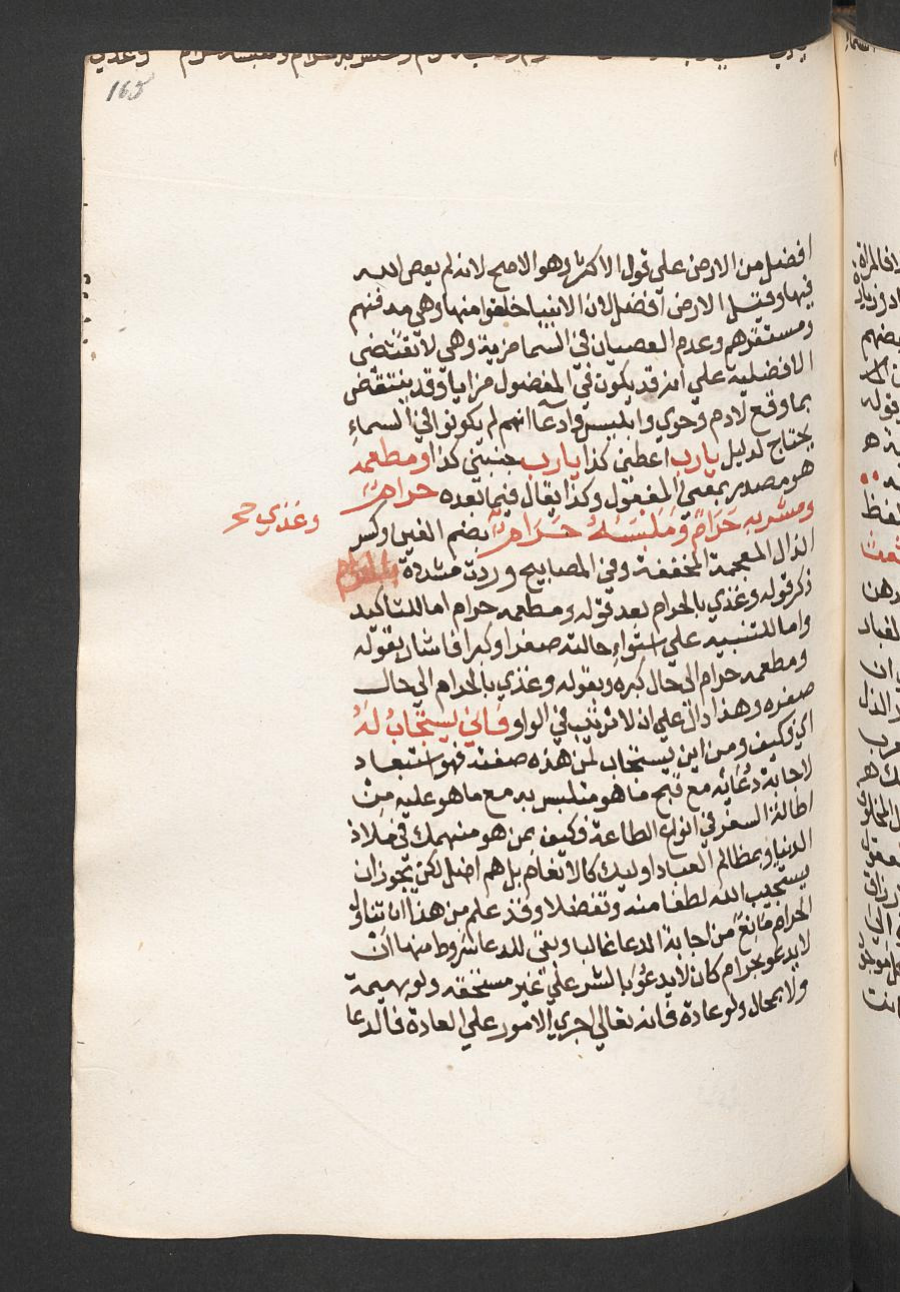 165
افضل من الارض علي قول الاكثر وهو الاصح لانه لم يعص الله
فيها وقيل الارض افضل لان الانبيا خلقوا منها وهي مدفنهم
ومستقرهم وعدم العصيان في السما مزية وهي لا تقتضي
الافضلية علي انه قد يكون في المفضول مزايا وقد ينتقض
بما وقع لادم وحوي وابليس وادعا انهم لم يكونوا في السماء
يحتاج لدليل يارب اعطني كذا يارب جنبني كذا ومطعمه
هو مصدر بمعني المفعول وكذا يقال فيما بعده حرام
ومشربه حَرَامٌ ومَلْبَسُهُ حَرَامٌ بضم الغين وكسر
وغذي صح
الذال المعجمة المخففة وفي المصابيح وردت مشددة بالحرام
ذكر قوله وغذي بالحرام بعد قوله ومطعمه حرام اما للتاكيد
واما للتنبيه علي استواء حالته صغرا وكبرا فاشار بقوله
ومطعمه حرام الي حال كبره وبقوله وغذي بالحرام الي حال
صغره وهذا دال علي ان لا ترتيب في الواو فاني يستجاب له
اي وكيف ومن اين يستجاب لمن هذه صفته فهو استبعاد
لاجابة دعائه مع قبح ما هو متلبس به مع ما هو عليه من
اطالة السفر في انواع الطاعة فكيف بمن هو منهمك في ملاذ
الدنيا وبمظالم العباد اوليك كالانعام بل هم اضل لكن يجوز ان
يستجيب الله لطفا منه وتفضلا وقد علم من هذا ان تناول
الحرام مانع من اجابة الدعا غالبا وبقي للدعا شروط منها ان
لا يدعو بحرام كان لا يدعو بالشر علي غير مستحقه ولو بهيمة
ولا بمحال ولو عادة فانه تعالي اجري الامور علي العادة فالدعا